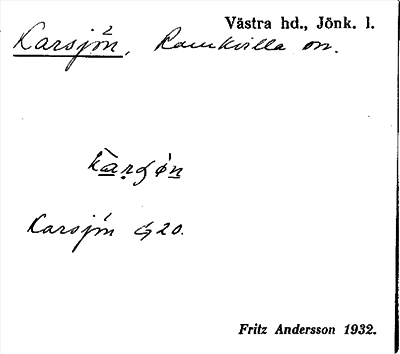 Västra hd., Jönk. l.
Karsjön, Ramkvilla sn.
Karsjön G20.
Fritz Andersson 1932.